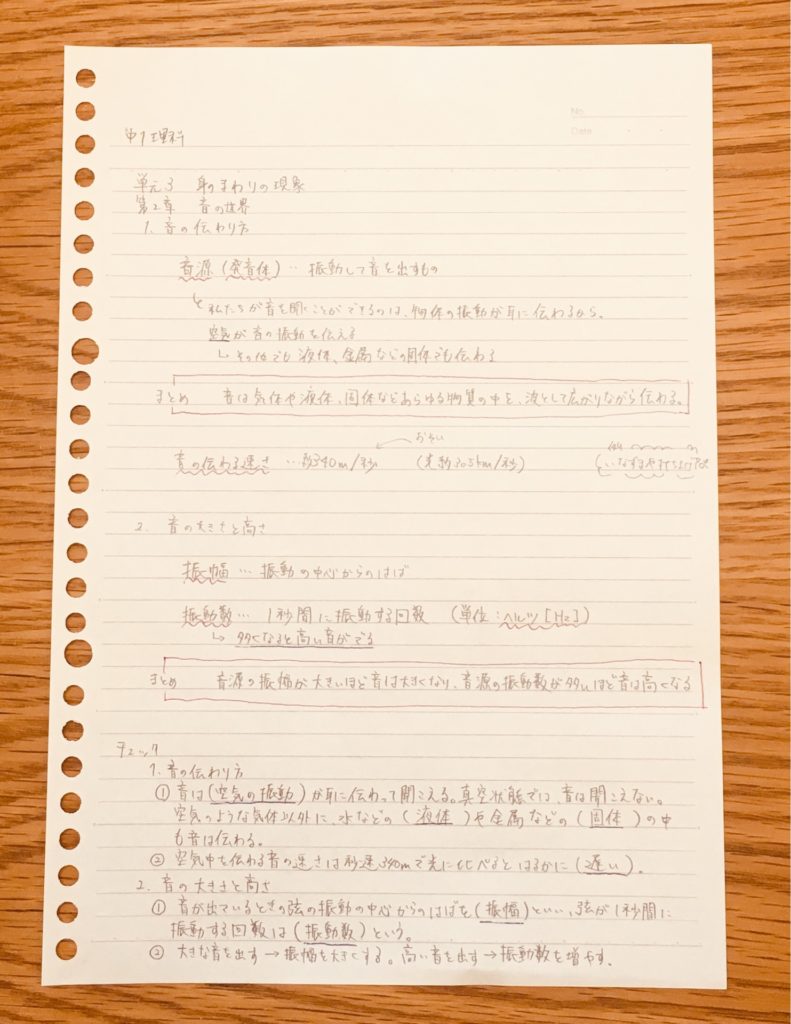 No.
Date
中1理科
単元3 身のまわりの現象
第2章 音の世界
1. 音の伝わり方
音源(発音体)… 振動して音を出すもの
私たちが音を聞くことができるのは、物体の振動が耳に伝わるから。
空気が音の振動を伝える
その他でも液体、金属などの固体でも伝わる
まとめ 音は気体や液体、固体などあらゆる物質の中を、波として広がりながら伝わる。
おそい
音の伝わる速さ …約340m/秒 (光約30万km/秒)
2. 音の大きさと高さ
振幅 … 振動の中心からのはば
振動数… 1秒間に振動する回数 (単位:ヘルツ[Hz])
多くなると高い音がでる
まとめ 音源の振幅が大きいほど音は大きくなり、音源の振動数が多いほど音は高くなる
チェック
1. 音の伝わり方
① 音は(空気の振動)が耳に伝わって聞こえる。真空状態では、音は聞こえない。
空気のような気体以外に、水などの(液体)や金属などの(固体)の中
も音は伝わる。
② 空気中を伝わる音の速さは秒速340mで光に比べるとはるかに(遅い)。
2. 音の大きさと高さ
① 音が出ているときの弦の振動の中心からのはばを(振幅)といい、弦が1秒間に
振動する回数は(振動数)という。
② 大きな音を出す→振幅を大きくする。高い音を出す→振動数を増やす.